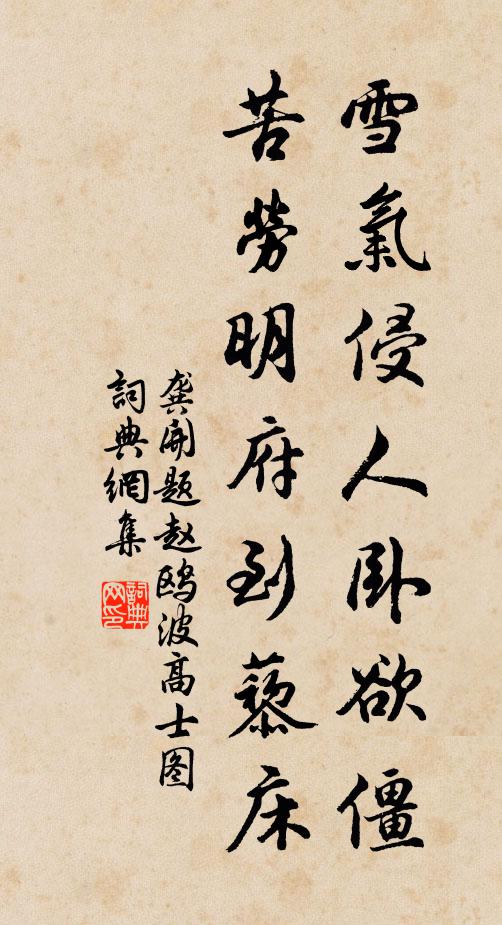 雪氣侵人卧欲僵
苦勞明府到藜床
龔開题赵鸥波高士图
詞典網集
詞典网印